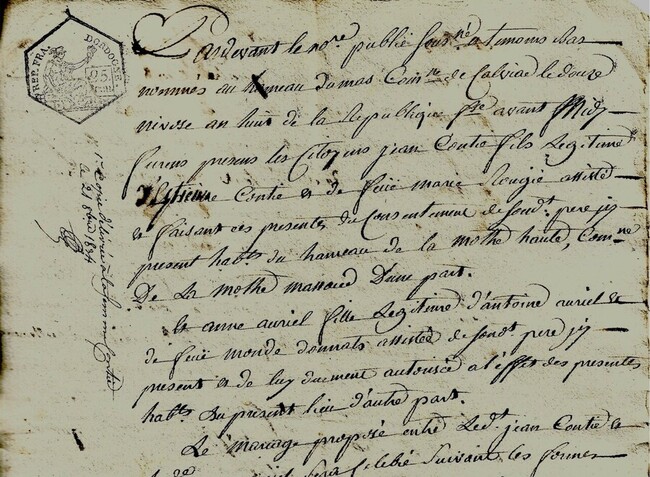 REP. FRA. DORDOGNE.
Pardevant le nore. publié sousné. a temoins bas
nommes au hameau Damas Comne de Calviac le douze
nivose an huit de la Republique fse avant Midy
furens presens les Citoyens jean Contie fils Legitime
d'Estienne Contie et de feüe marie Rougié assisté
et faisant ces presentes du Consentement de sondt. pere jcy
present habts du hameau de la mothe haute, Comne
De La Mothe massaud D'une part.
et anne auriel fille Legitime d'antoine auriel et
de feüe monde donnats assistée de sondt pere jcy
present et de luy duement autorisée a l'effet des presentes
habts. Du present lieu d'autre part.
Le mariage proposé entre Ledt. jean Contie et
sera Celebré Suivant les formes